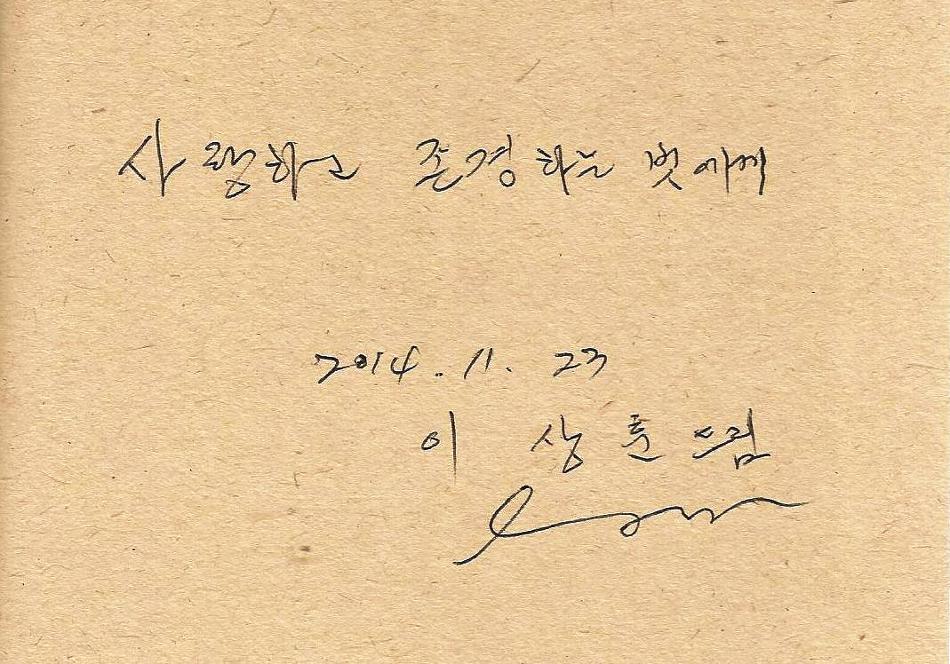 사랑하고 존경하는 벗에게
2014. 11. 23
이 상훈 드림